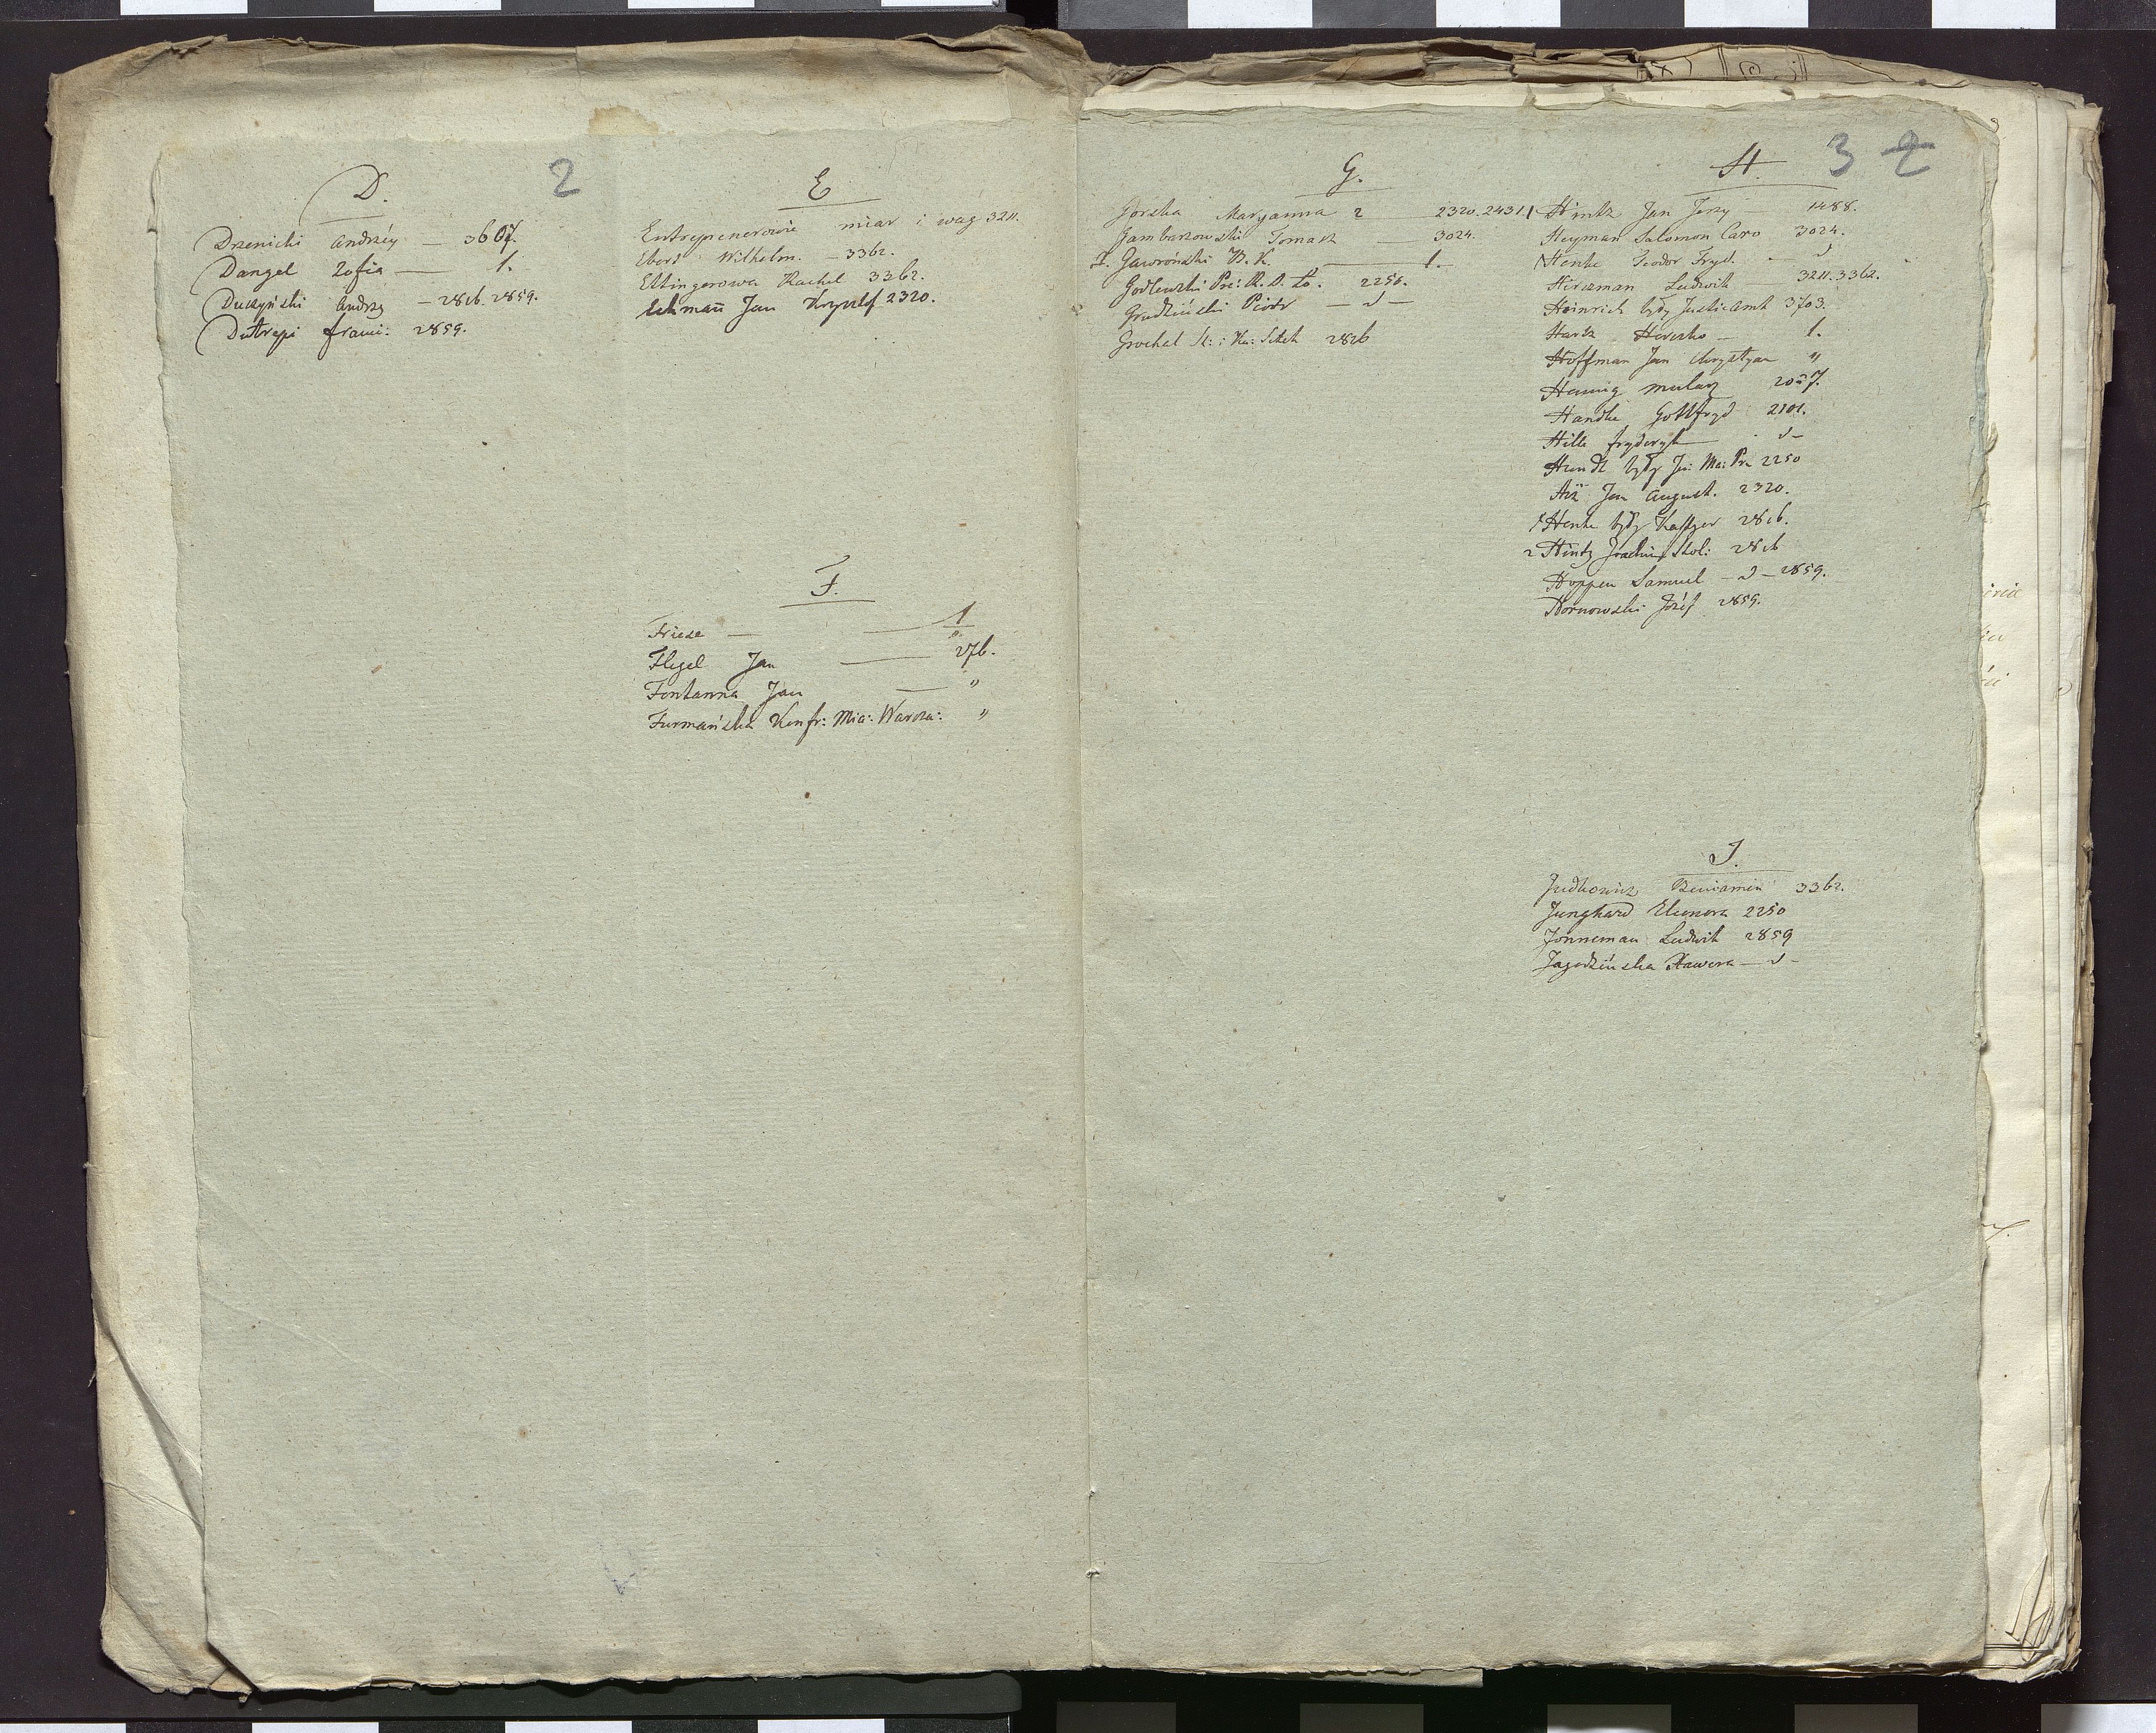 D.
2
Drzenicki Andrzéy — 3607.
Dangel Zofia — 1.
Duczyński Andrzy — 2816. 2859.
Duttrepi franci: 2859.
E
Entreprenerowie miar i wag 3211.
Eberd Wilhelm. — 3362.
Ettingerowa Rachel 3362.
Eckmañ Jan Krysztof 2320.
F.
Frieze — — 1
Flegel Jan — 276.
Fontanna Jan — "
Furmańska Konfr: Mia: Warsza: "
G.
Gorska Maryanna 2 2320. 2431.
Gambarzowski Tomasz — 3024.
Gawroński B. K. — 1.
Godlewski Pre: R. D. Ło. 2250.
Grudziński Piotr — d —
Grochal St: Ka: Sztch 2816
H.
3 2
1 Hintz Jan Jerzy — 1488.
Heyman Salomon Caro 3024.
Henke Teodor Fryd. — d
Hirszman Ludwik 3211. 3362.
Heinrich były Justicamt 3703.
Hartz Herszko — 1.
Hoffman Jan Chrystyan "
Hennig mularz 2027.
Handke Gottfryd 2101.
Hille fryderyk — d —
Hundt były Ju: Ma: Pr. 2250
Hiż Jan August. 2320.
1 Henke były Kassyer 2816.
2 Hintz Joachim Stol: 2816
Hoppen Samuel — d — 2859.
Hornowski Józef 2859.
J.
Judkowicz Beniamin 3362.
Junghard Eleonora 2250
Jonneman Ludwik 2859
Jagodzińska Xawera — d —